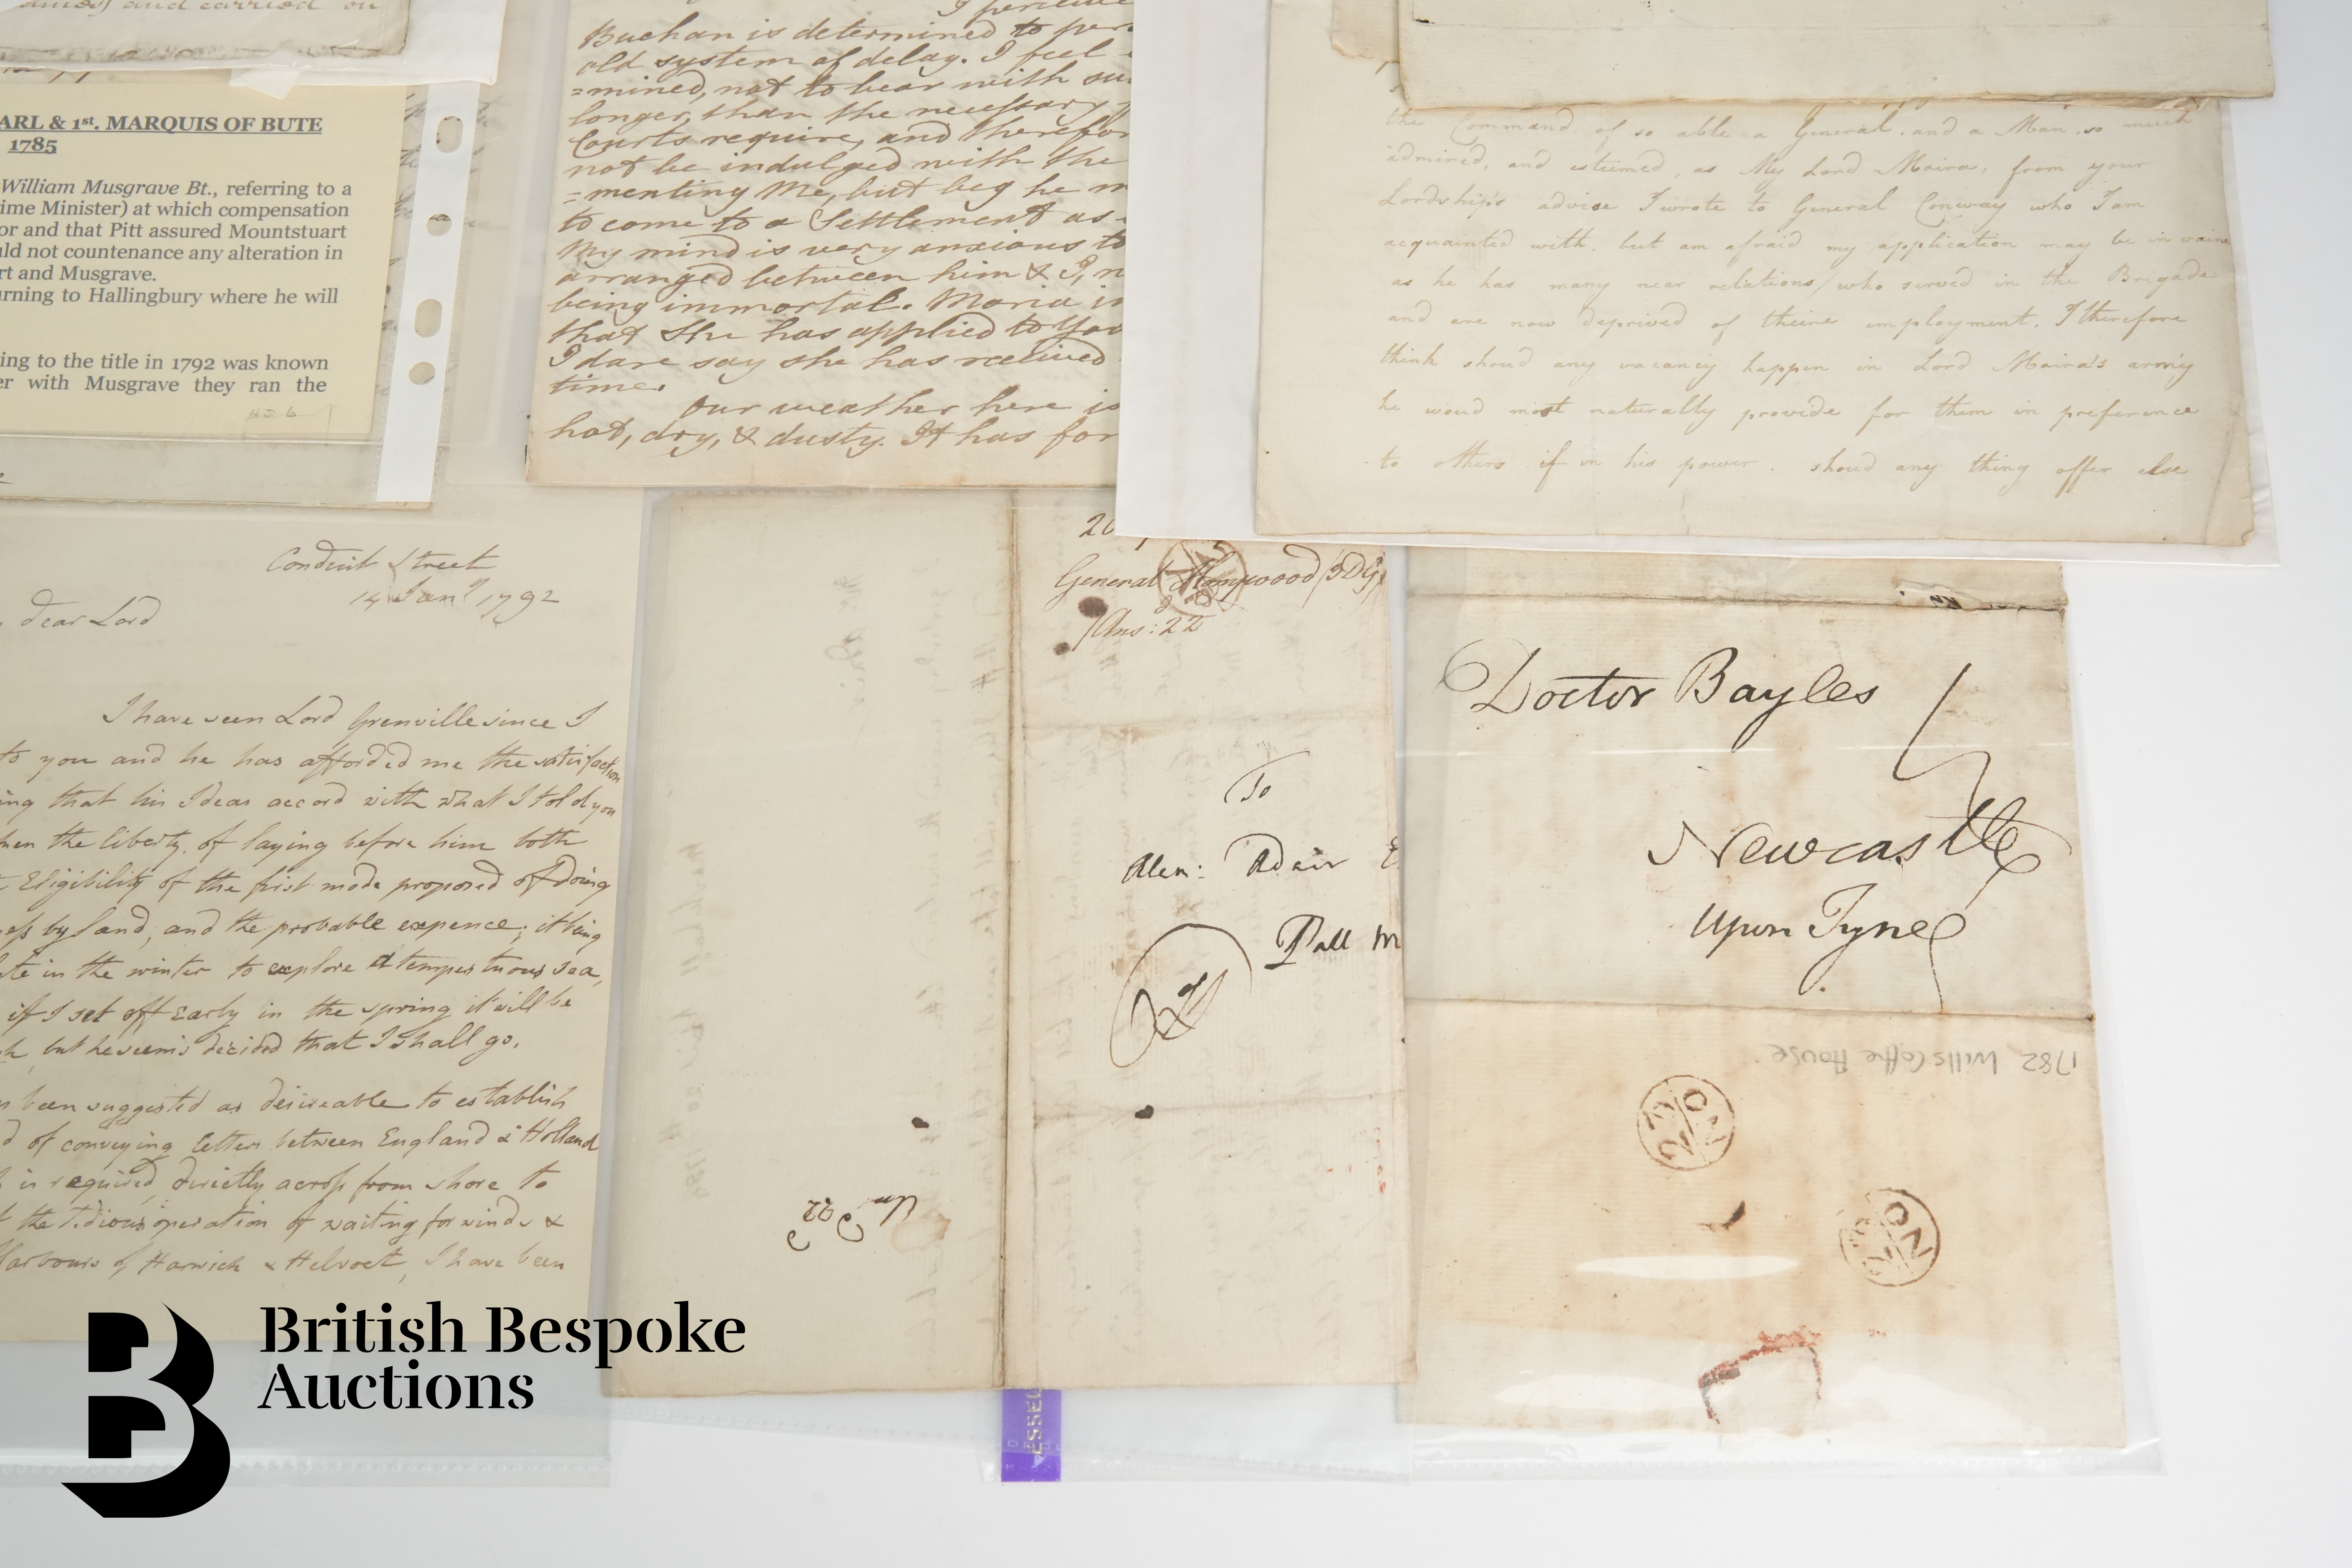 and carried on
ARL & 1st. MARQUIS OF BUTE
1785
William Musgrave Bt., referring to a
ime Minister) at which compensation
or and that Pitt assured Mountstuart
uld not countenance any alteration in
rt and Musgrave.
urning to Hallingbury where he will
ing to the title in 1792 was known
er with Musgrave they ran the
I perceive
Buchan is determined to per
old system of delay. I feel
=mined, not to bear with su
longer, than the necessary
Courts require, and therefor
not be indulged with the
=menting Me, but beg he m
to come to a Settlement as
My mind is very anxious to
arranged between him & I, n
being immortal. Maria i
that She has applied to You
I dare say she has received
time.
Our weather here is
hot, dry, & dusty. It has for
the Command of so able a General, and a Man, so much
admired, and esteemed, as My Lord Moira, from your
Lordship's advise I wrote to General Conway who I am
acquainted with, but am afraid my application may be in vaine
as he has many near relations, who served in the Brigade
and are now deprived of theire employment. I therefore
think shoud any vacancy happen in Lord Moira's army
he woud most naturally provide for them in preference
to others if in his power. shoud any thing offer else
Conduit Street
14 Jany 1792
dear Lord
I have seen Lord Grenville since I
to you and he has afforded me the satisfaction
ing that his Ideas accord with what I told you
hen the liberty of laying before him both
Eligibility of the first mode proposed of doing
by land, and the probable expence; it being
te in the winter to explore a tempestuous sea,
if I set off early in the spring it will be
but he seems decided that I shall go.
been suggested as desireable to establish
d of conveying letters between England & Holland
is required, directly across from shore to
the tedious operation of waiting for winds &
Harbours of Harwich & Helvoet, I have been
General Honywood 3DG
Ans: 22
To
Alexr: Adair E
Pall M
Doctor Bayles
Newcastle
upon Tyne
1782 Wills Coffe House
NO
NO
ESSEL
British Bespoke
Auctions